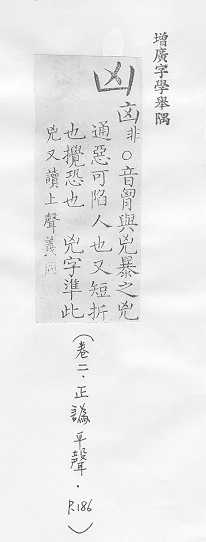 增廣字學舉隅
凶㐫非○音胷與兇暴之兇
通惡可陷人也又短折
也攪恐也 兇字準此
兇又讀上聲義同
(卷二·正譌平聲·P.186)